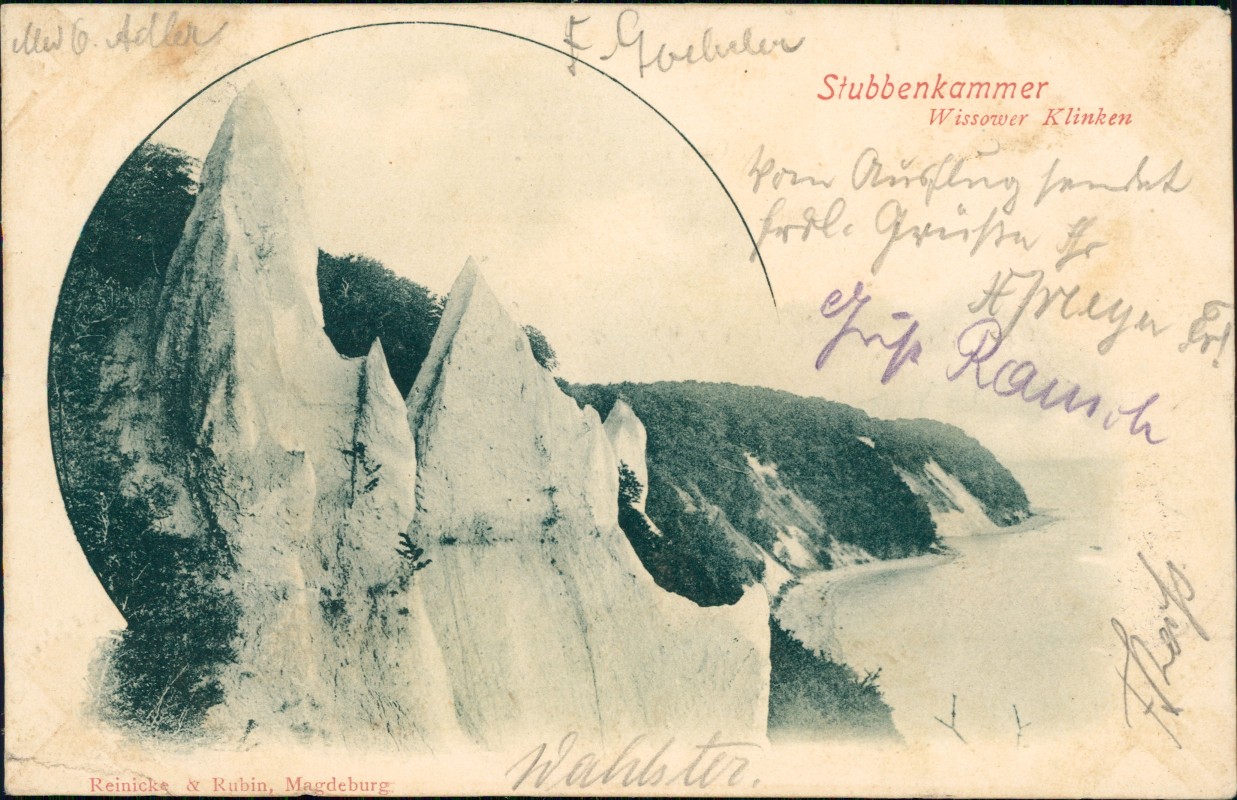 Adler
F Goebeler
Stubbenkammer
Wissower Klinken
Vom Ausflug sendet
frdl. Grüße Ihr
Meyer
Gust Rausch
Wahlster.
Reinicke & Rubin, Magdeburg